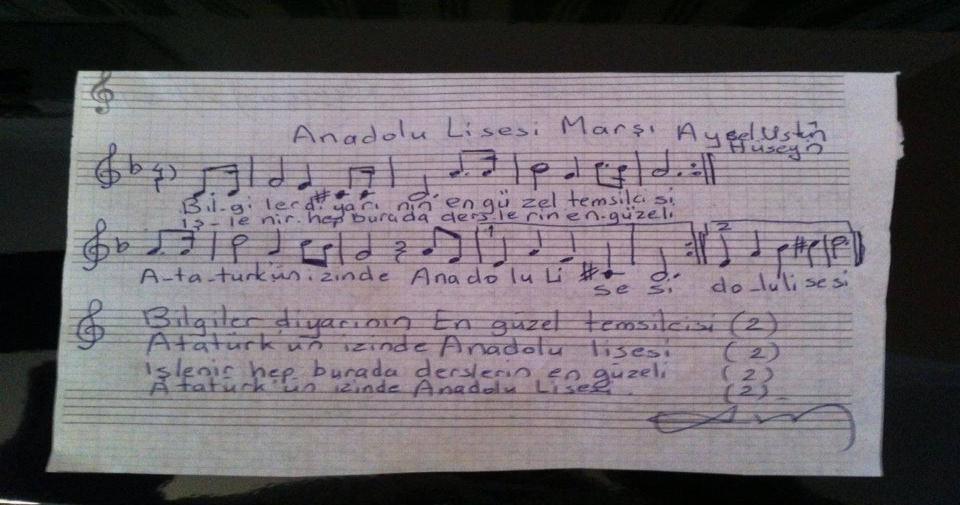 Anadolu Lisesi Marşı Aysel Üstün
Hüseyin
Bil-gi lerdi yarı nin en gü zel temsilci si
iş-le nir hep burada ders-le rin en-güzeli
1 2
A-ta-türkün izinde Anadolu Li se si do-lulisesi
Bilgiler diyarının En güzel temsilcisi (2)
Atatürk'ün izinde Anadolu lisesi (2)
işlenir hep burada derslerin en güzeli (2)
Atatürk'ün izinde Anadolu Lisesi. (2)